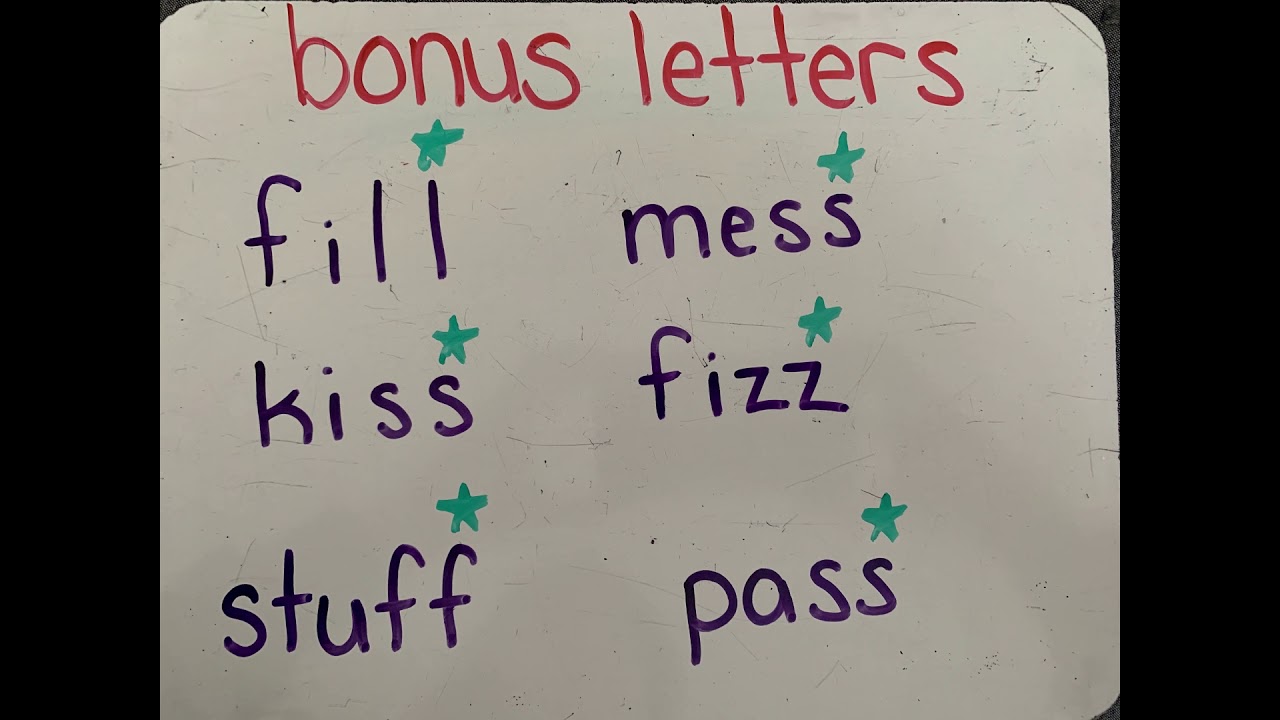 bonus letters
fill mess
kiss fizz
stuff pass